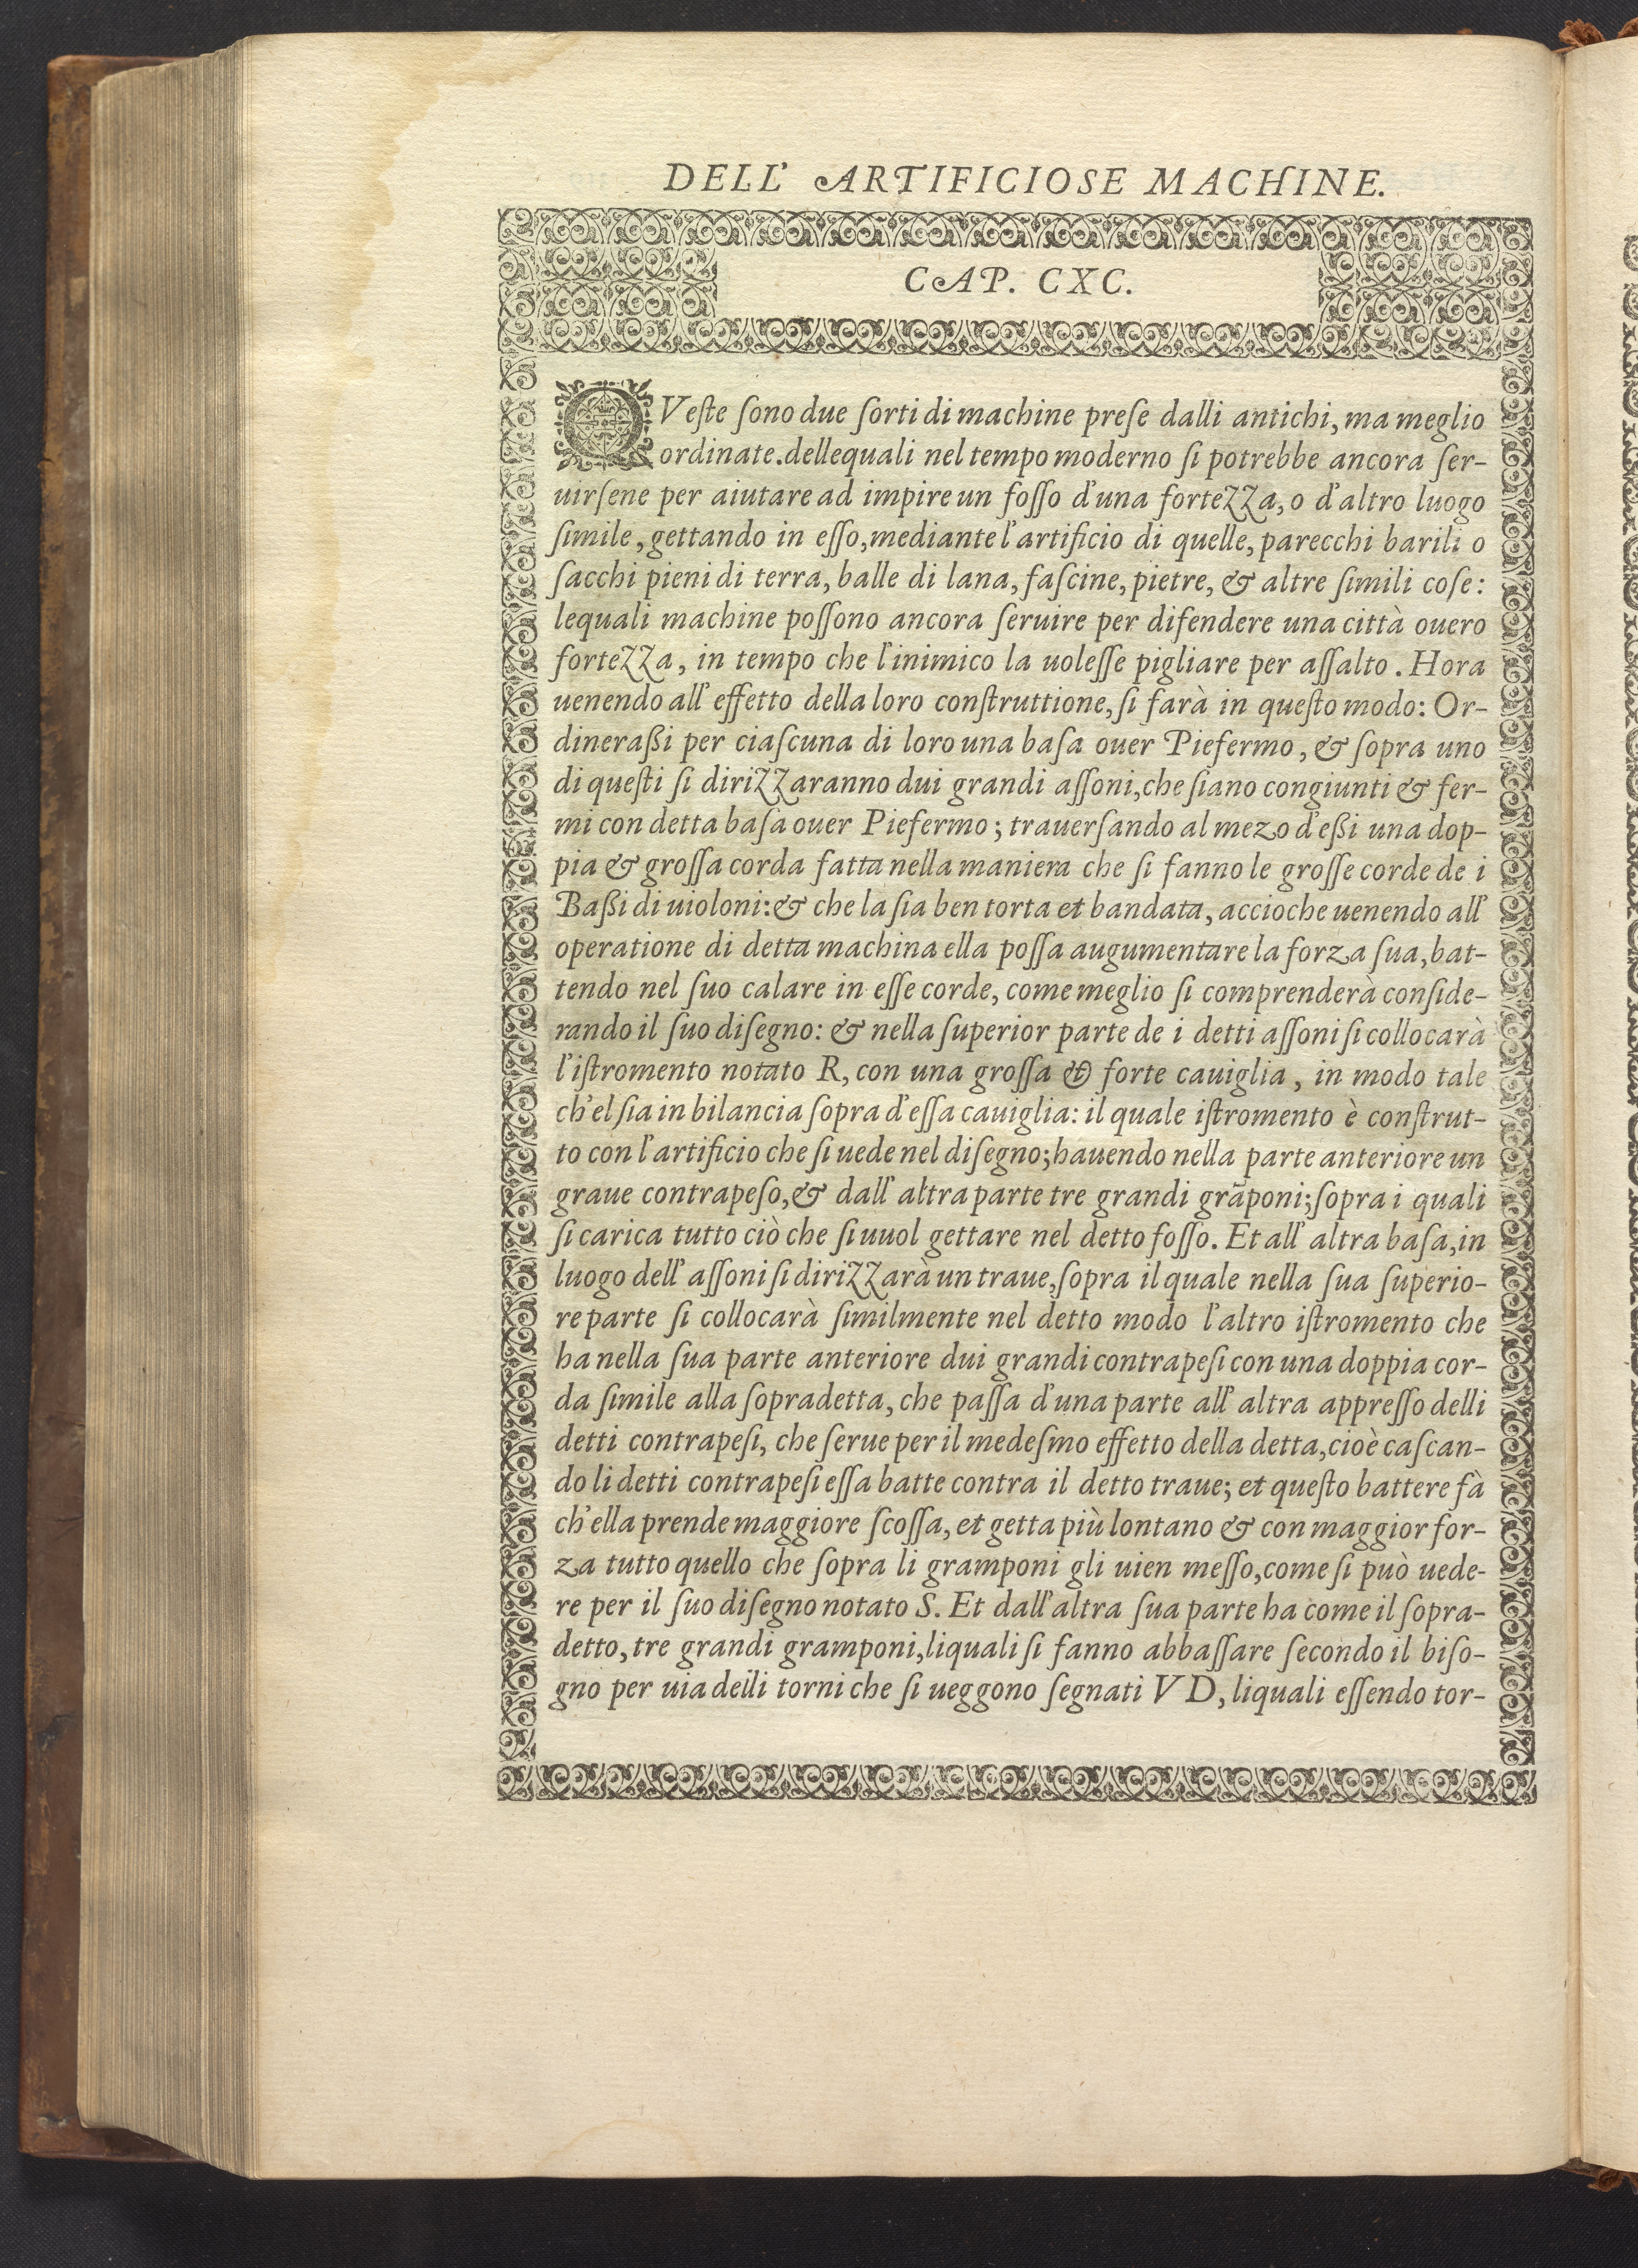 DELL' ARTIFICIOSE MACHINE.
CAP. CXC.
QVeſte ſono due ſorti di machine preſe dalli antichi, ma meglio
ordinate. dellequali nel tempo moderno ſi potrebbe ancora ſer-
uirſene per aiutare ad impire un foſſo d'una fortezza, o d'altro luogo
ſimile, gettando in eſſo, mediante l'artificio di quelle, parecchi barili o
ſacchi pieni di terra, balle di lana, faſcine, pietre, & altre ſimili coſe:
lequali machine poſſono ancora ſeruire per difendere una città ouero
fortezza, in tempo che l'inimico la uoleſſe pigliare per aſſalto. Hora
uenendo all' effetto della loro conſtruttione, ſi farà in queſto modo: Or-
dineraßi per ciaſcuna di loro una baſa ouer Piefermo, & ſopra uno
di queſti ſi dirizzaranno dui grandi aſſoni, che ſiano congiunti & fer-
mi con detta baſa ouer Piefermo; trauerſando al mezo d'eßi una dop-
pia & groſſa corda fatta nella maniera che ſi fanno le groſſe corde de i
Baßi di uioloni: & che la ſia ben torta et bandata, accioche uenendo all'
operatione di detta machina ella poſſa augumentare la forza ſua, bat-
tendo nel ſuo calare in eſſe corde, come meglio ſi comprenderà conſide-
rando il ſuo diſegno: & nella ſuperior parte de i detti aſſoni ſi collocarà
l'iſtromento notato R, con una groſſa & forte cauiglia, in modo tale
ch'el ſia in bilancia ſopra d'eſſa cauiglia: il quale iſtromento è conſtrut-
to con l'artificio che ſi uede nel diſegno; hauendo nella parte anteriore un
graue contrapeſo, & dall' altra parte tre grandi grãponi; ſopra i quali
ſi carica tutto ciò che ſi uuol gettare nel detto foſſo. Et all' altra baſa, in
luogo dell' aſſoni ſi dirizzarà un traue, ſopra il quale nella ſua ſuperio-
re parte ſi collocarà ſimilmente nel detto modo l'altro iſtromento che
ha nella ſua parte anteriore dui grandi contrapeſi con una doppia cor-
da ſimile alla ſopradetta, che paſſa d'una parte all' altra appreſſo delli
detti contrapeſi, che ſerue per il medeſmo effetto della detta, cioè caſcan-
do li detti contrapeſi eſſa batte contra il detto traue; et queſto battere fà
ch'ella prende maggiore ſcoſſa, et getta più lontano & con maggior for-
za tutto quello che ſopra li gramponi gli uien meſſo, come ſi può uede-
re per il ſuo diſegno notato S. Et dall' altra ſua parte ha come il ſopra-
detto, tre grandi gramponi, liquali ſi fanno abbaſſare ſecondo il biſo-
gno per uia delli torni che ſi ueggono ſegnati V D, liquali eſſendo tor-